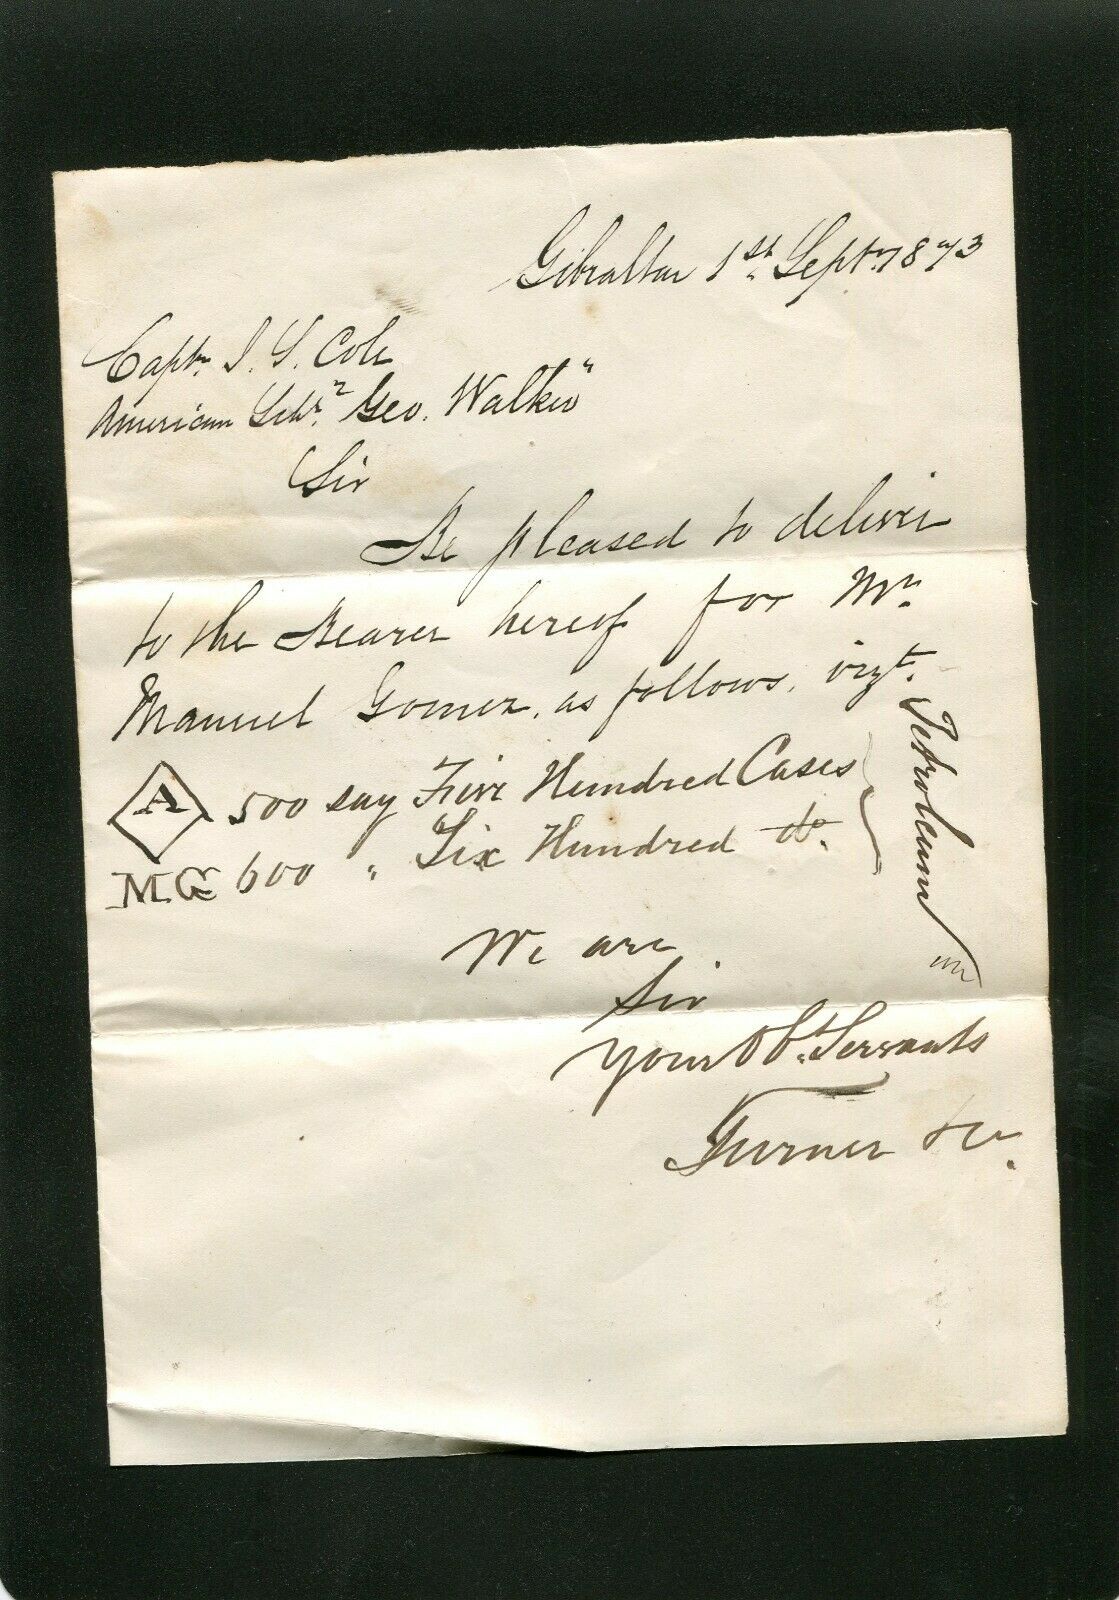 Gibraltar 1st. Septr. 1873
Captn. J. S. Cole
American Schr. "Geo. Walker"
Sir
Be pleased to deliver
to the Bearer hereof for Mr.
Manuel Gomez, as follows, vizt.
A 500 say Five Hundred Cases
M.G 600 " Six Hundred do.
Petroleum
We are
Sir
Your Ob. Servants
Turner & Co.